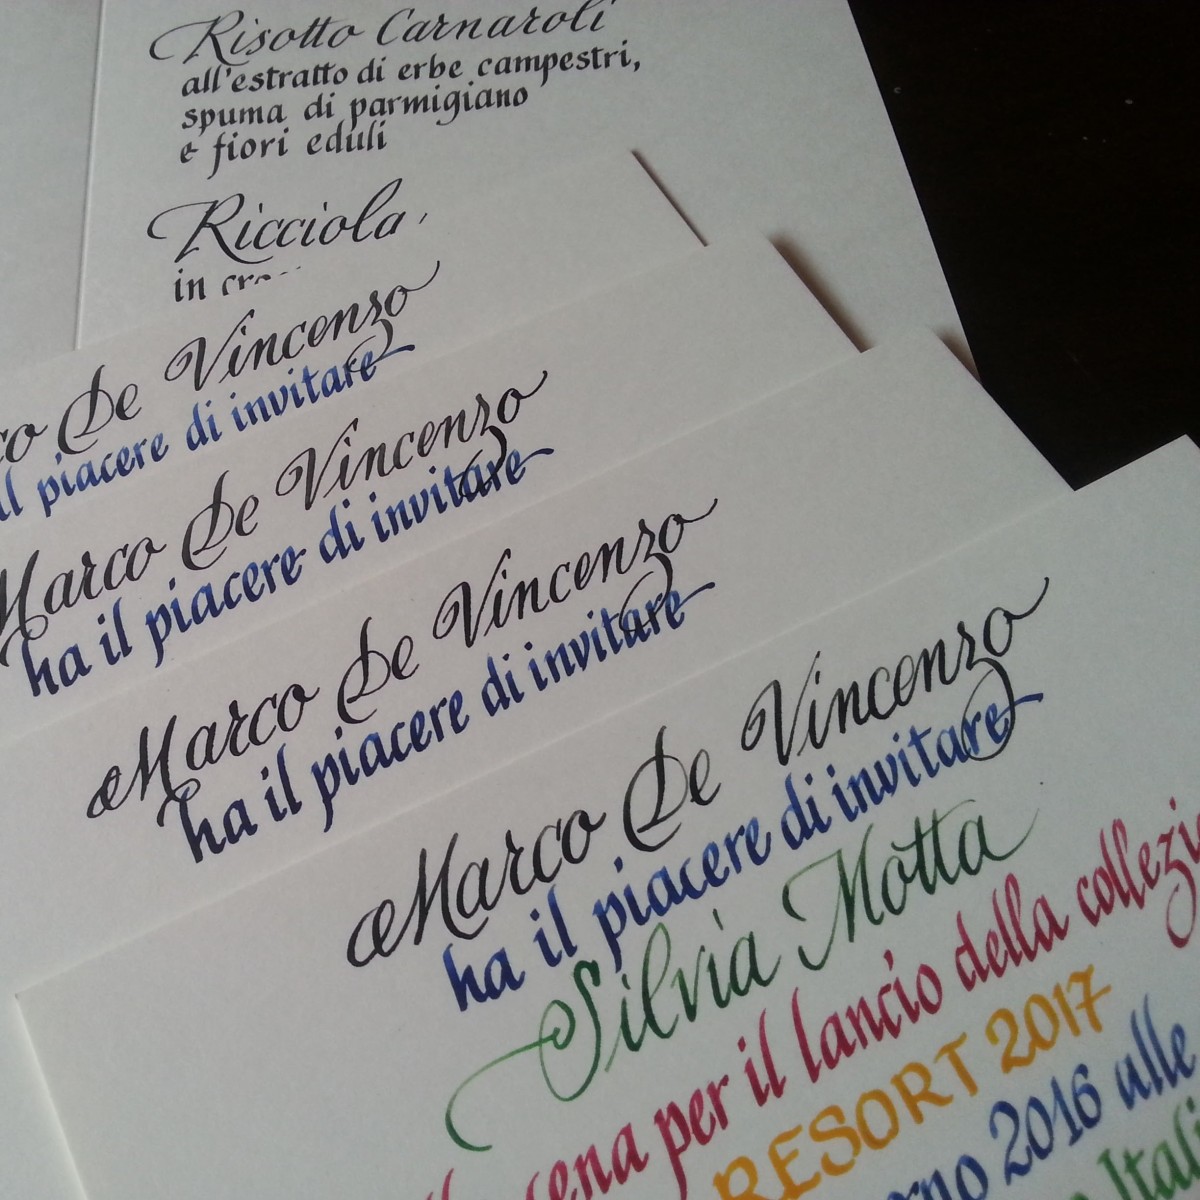 Risotto Carnaroli
all'estratto di erbe campestri,
spuma di parmigiano
e fiori eduli
Ricciola
in
De Vincenzo
il piacere di invitare
Marco De Vincenzo
ha il piacere di invitare
Marco De Vincenzo
ha il piacere di invitare
Marco De Vincenzo
ha il piacere di invitare
Silvia Motta
per il lancio della
RESORT 2017
2016 alle